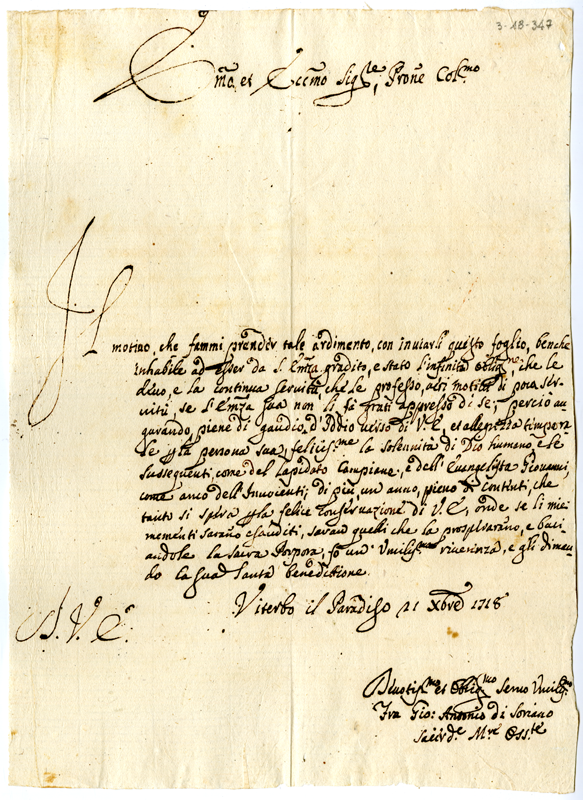 3-18-347
Em̃a et Ecc̃mo Sig.re Prone Col.mo
Il
motiuo, che fammi prender tale ardimento, con inuiarli questo foglio, benche
inhabile ad esser da S. Em̃za gradito, e stato l'infinita oblig.ne che le
deuo, e la continua seruitù, che le professo, altri motiui di poca ser-
uitù, se l'Em̃za sua non li fà grati appresso di se; perciò au-
gurando, piene di gaudio d'Iddio uerso di V. E. et allegrezza tempora-
le p la persona sua feliciss.me la solennità di Dio humano, e le
susseguenti, come del lapidato Campione, e dell'Euangelista Giouanni,
come anco dell'Innocenti; di più, un anno, pieno di contenti, che
tanto si spera p la felice conseruazione di V. E, onde se li miei
mementi sarano esauditi, saran quelli che la prosperarano, e baci-
andole la sacra Porpora, fò un Umilis.ma riuerenza, e gli diman-
do la sua santa benedittione.
Viterbo il Paradiso 21 Xbre 1718
S. V. E.
Deuotis.mo et Oblig.mo Seruo Umilis.
Fra Gio: Antonio di Soriano
Sacerd.e M.re Oss.te